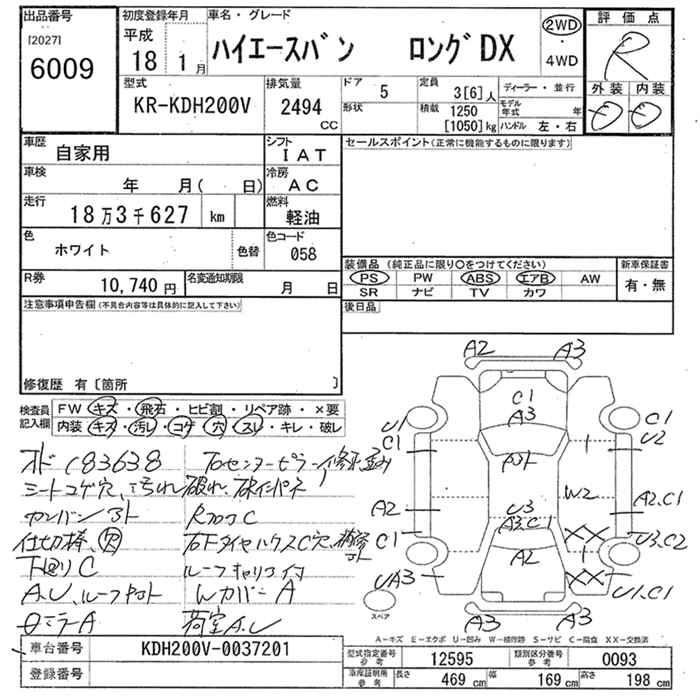 出品番号 初度登録年月 車名・グレード 評価点
[2027] 平成 ハイエースバン ロングDX 2WD
6009 18 1月 ・ R
4WD
型式 排気量 ドア 5 定員 3[6]人 ディーラー・並行 外装 内装
KR-KDH200V 2494 CC 形状 積載 1250 [1050]kg モデル年式 年 D D
ハンドル 左・右
車歴 自家用 シフト IAT セールスポイント(正常に機能するものに限ります)
車検 年 月( 日) 冷房 AC
走行 18万3千627 km 燃料 軽油
色 ホワイト 色替 色コード 058
装備品 (純正品に限り○をつけてください) 新車保証書
R券 10,740円 名変通知期限 月 日 PS PW ABS エアB AW 有・無
SR ナビ TV カワ
注意事項申告欄(不具合内容等は具体的に記入して下さい) 後日品
修復歴 有〔箇所 〕
検査員記入欄 FW キズ・飛石・ヒビ割・リペア跡・×要
内装 キズ・汚レ・コゲ・穴・スレ・キレ・破レ
オドバ183638 右センターピラー修歪み
シートコゲ穴、汚れ破れ
カンバンアト R加コC
仕切棒、穴 右下タイヤハウスC穴
下廻りC ルーフキャリア付
A.U、ルーフ WカバーA
ロミラーA 荷室A.U
A2 A3
C1
A3
U1 C1
C1 U2
A2 U3 W2 A2.C1
A3.C1
C1 XX U3.C2
A2
UA3 XX U1.C1
A3 A3
スペア
A－キズ E－エクボ U－凹み W－補修跡 S－サビ C－腐食 XX－交換済
車台番号 KDH200V-0037201 型式指定番号 参考 12595 類別区分番号 参考 0093
登録番号 車庫証明 参考 長さ 469 cm 幅 169 cm 高さ 198 cm